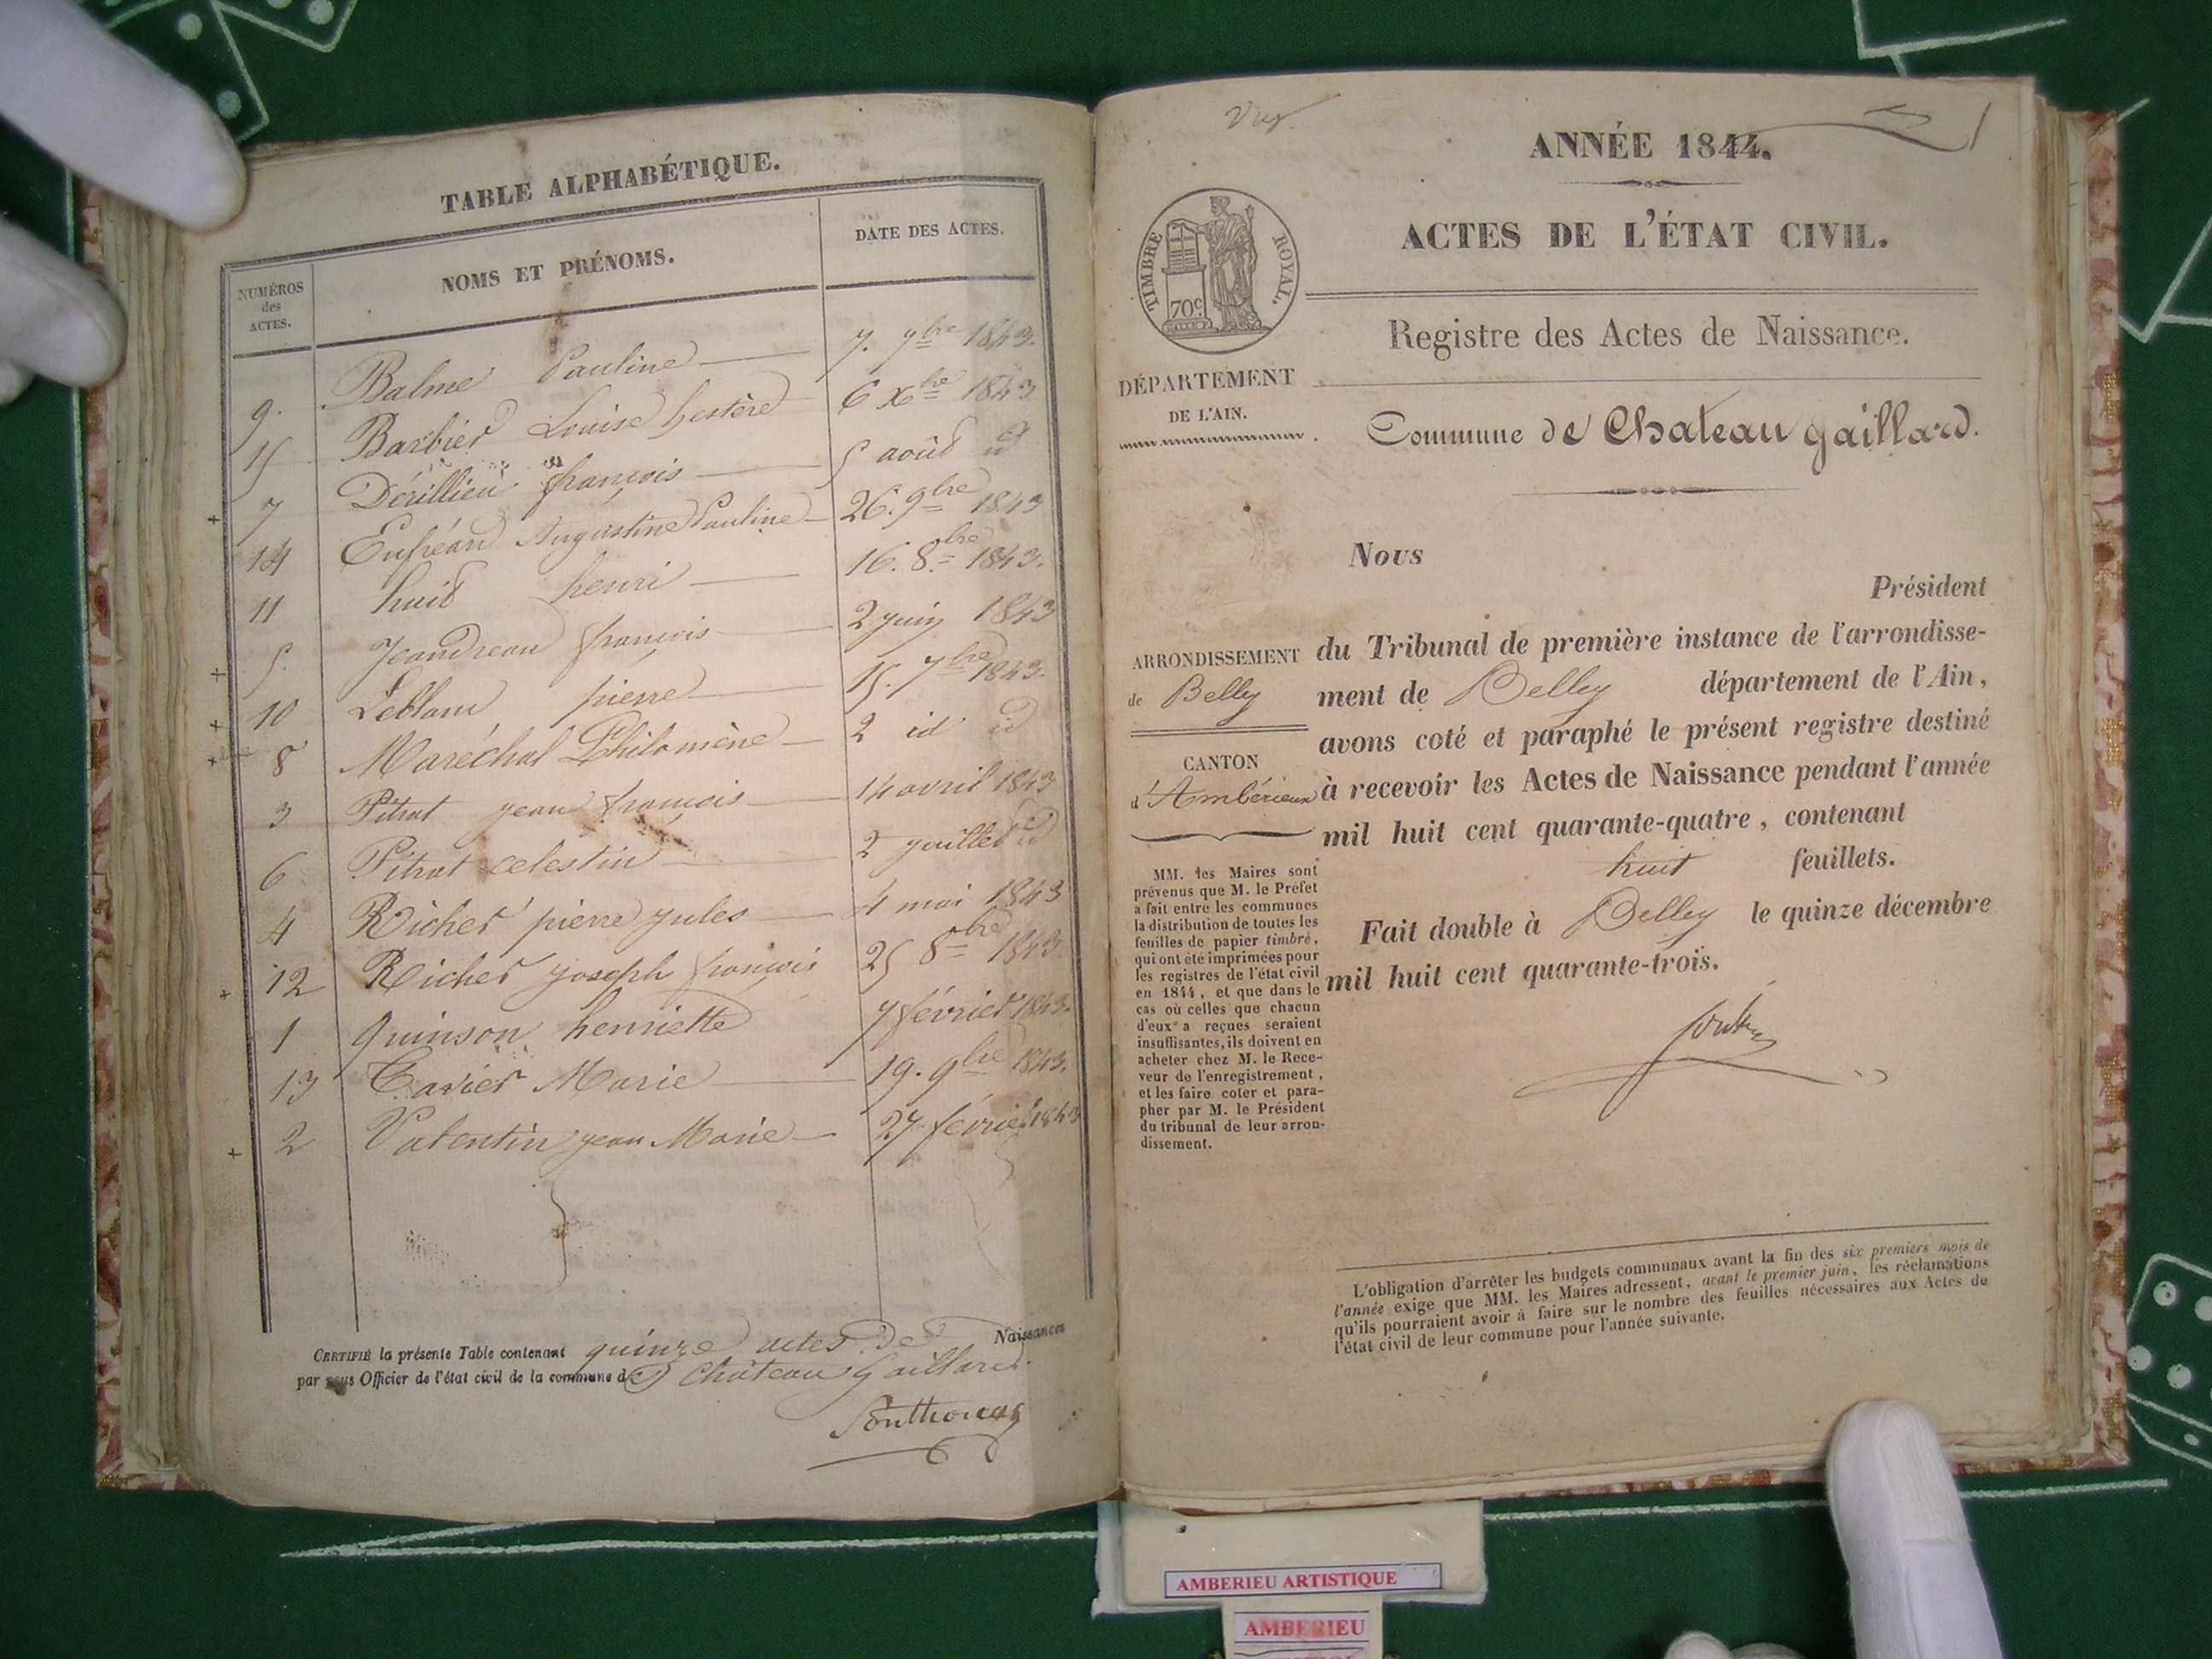 TABLE ALPHABÉTIQUE.
NUMÉROS des ACTES.
NOMS ET PRÉNOMS.
DATE DES ACTES.
9. Balme Pauline 7. 7bre 1843.
15 Barbier Louise hestère 6 Xbre 1843
7 Dérillieu françois 5 août id
14 Augustine Pauline 26. 9bre 1843
11 huit henri 16. 8bre 1843.
5. Jeandreau françois 2 juin 1843
10 Leblanc pierre 15. 7bre 1843.
8 Maréchal Philomène 2 id id
3 Pitrat jean françois 14 avril 1843
6 Pitrat celestin 2 juillet id
4 Richer pierre jules 4 mai 1843
12 Richer joseph françois 25 8bre 1843.
1 quinson henriette 7 février 1843.
13 Tavier Marie 19. 9bre 1843.
2 Valentin jean Marie 27 février 1843
CERTIFIÉ la présente Table contenant quinze actes de Naissances
par nous Officier de l'état civil de la commune de Château Gaillard.
ANNÉE 1844.
ACTES DE L'ÉTAT CIVIL.
TIMBRE ROYAL.
70c
Registre des Actes de Naissance.
DÉPARTEMENT
DE L'AIN.
Commune de Chateau gaillard.
Nous
Président
du Tribunal de première instance de l'arrondisse-
ment de Belley département de l'Ain,
avons coté et paraphé le présent registre destiné
à recevoir les Actes de Naissance pendant l'année
mil huit cent quarante-quatre, contenant
huit feuillets.
Fait double à Belley le quinze décembre
mil huit cent quarante-trois.
ARRONDISSEMENT
de Belley
CANTON
d'Ambérieux
MM. les Maires sont
prévenus que M. le Préfet
a fait entre les communes
la distribution de toutes les
feuilles de papier timbré,
qui ont été imprimées pour
les registres de l'état civil
en 1844, et que dans le
cas où celles que chacun
d'eux a reçues seraient
insuffisantes, ils doivent en
acheter chez M. le Rece-
veur de l'enregistrement,
et les faire coter et para-
pher par M. le Président
du tribunal de leur arron-
dissement.
L'obligation d'arrêter les budgets communaux avant la fin des six premiers mois de
l'année exige que MM. les Maires adressent, avant le premier juin, les réclamations
qu'ils pourraient avoir à faire sur le nombre des feuilles nécessaires aux Actes de
l'état civil de leur commune pour l'année suivante.
AMBERIEU ARTISTIQUE
AMBERIEU